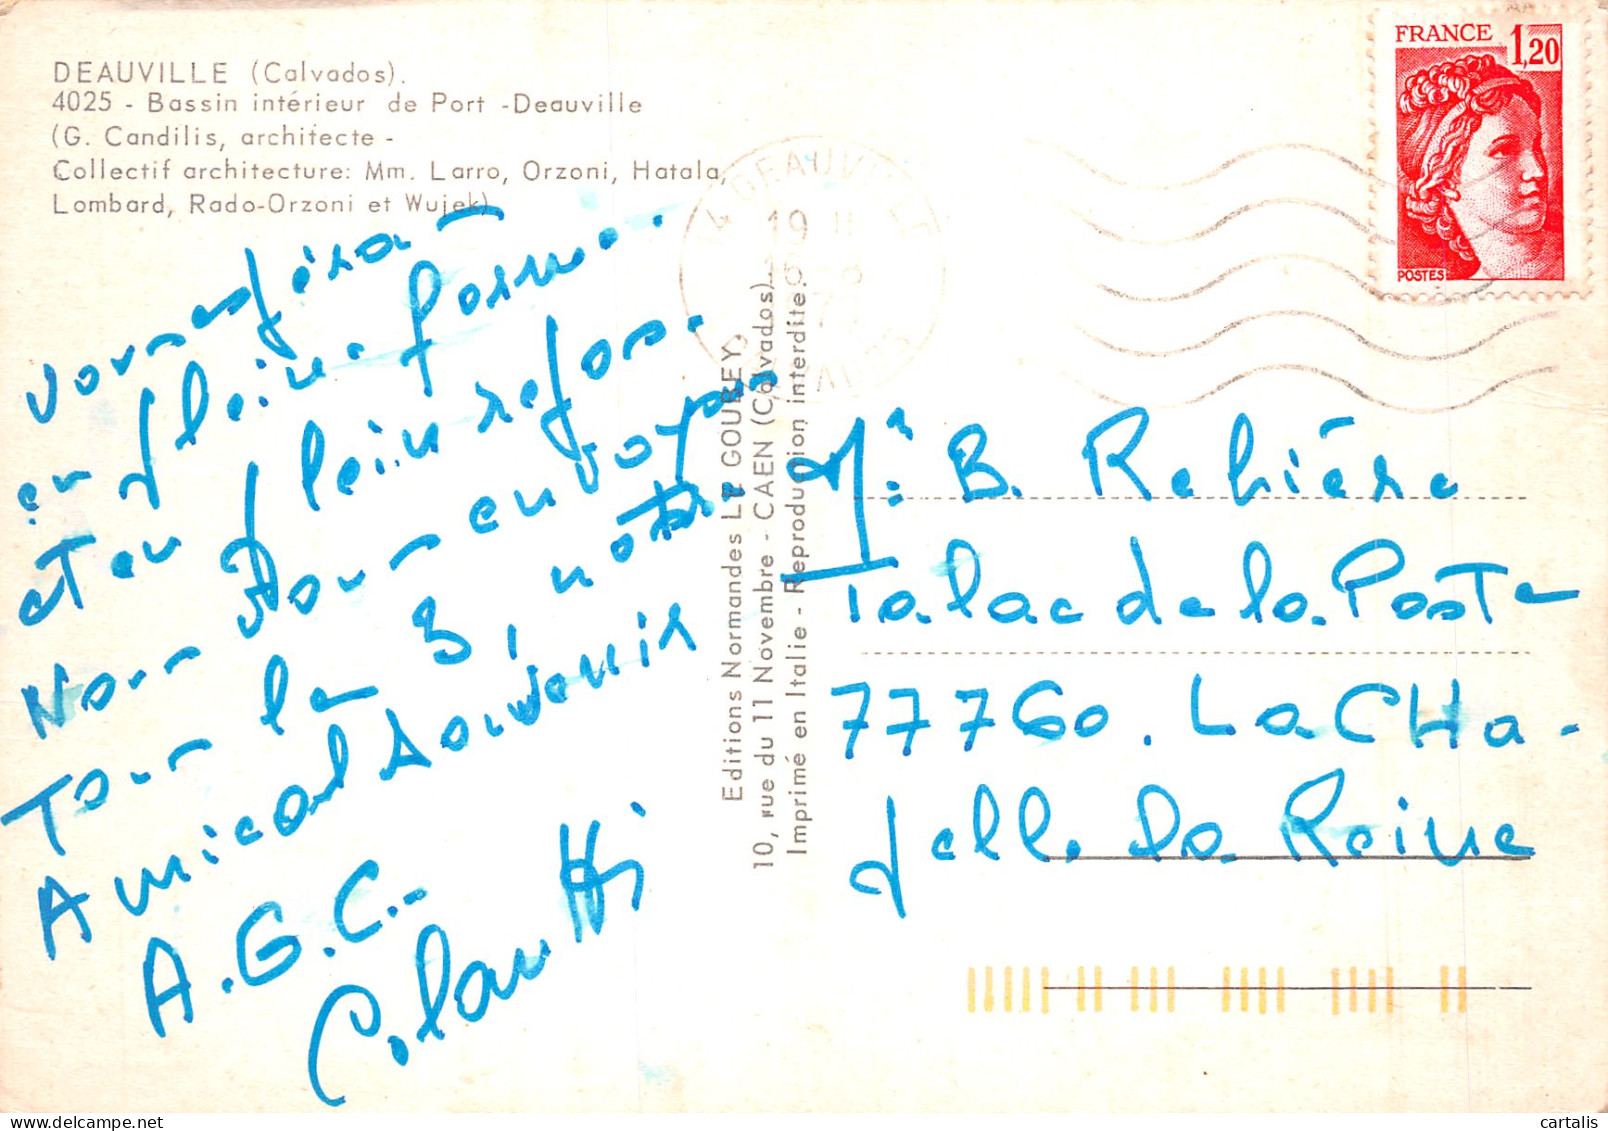 DEAUVILLE (Calvados).
4025 - Bassin intérieur de Port -Deauville
(G. Candilis, architecte -
Collectif architecture: Mm. Larro, Orzoni, Hatala,
Lombard, Rado-Orzoni et Wujek)
FRANCE 1,20
POSTES
DEAUVILLE
19 H
en pleine forme
et en plein repos.
Nous vous envoyons
Tous les 3, notre
Amical souvenir
A.G.C.
Editions Normandes LE GOUBEY,
10, rue du 11 Novembre - CAEN (Calvados)
Imprimé en Italie - Reproduction interdite.
B. Rebière
Palac de la Poste
77760. La CHa-
pelle la Reine
cartalis